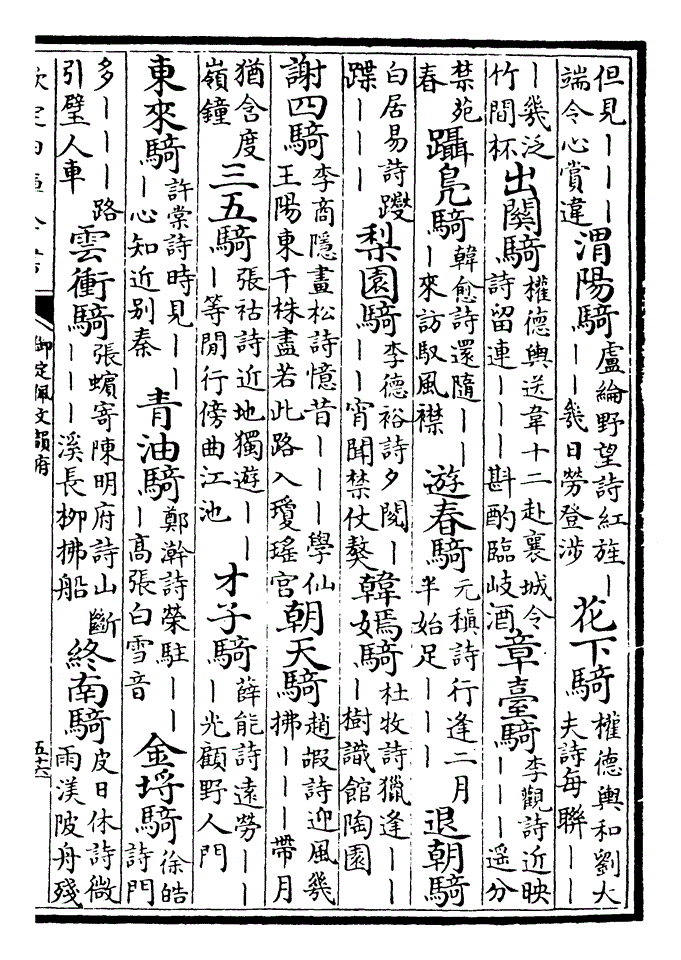 但見丨丨丨
端令心賞違
渭陽騎
盧綸野望詩紅旌丨
丨丨幾日勞登涉
花下騎
權德輿和劉大
夫詩每聯丨丨
丨幾泛
竹間杯
出關騎
權德輿送韋十二赴襄城令
詩留連丨丨丨斟酌臨岐酒
章臺騎
李觀詩近映
丨丨丨遥分
禁苑
春
躡鳧騎
韓愈詩還隨丨丨
丨來訪馭風襟
遊春騎
元稹詩行逢二月
半始足丨丨丨
退朝騎
白居易詩躞
蹀丨丨丨
梨園騎
李德裕詩夕閱丨
丨丨宵聞禁仗鼛
韓嫣騎
杜牧詩獵逢丨丨
丨樹識館陶園
謝四騎
李商隱畫松詩憶昔丨丨丨學仙
王陽東千株盡若此路入瓊瑤宮
朝天騎
趙嘏詩迎風幾
拂丨丨丨帶月
猶含度
嶺鐘
三五騎
張祜詩近地獨遊丨丨
丨等閒行傍曲江池
才子騎
薛能詩遠勞丨丨
丨光顧野人門
東來騎
許棠詩時見丨丨
丨心知近别秦
青油騎
鄭澣詩榮駐丨丨
丨高張白雪音
金埒騎
徐皓
詩門
多丨丨丨路
引璧人車
雲衝騎
張蠙寄陳明府詩山斷
丨丨丨溪長柳拂船
終南騎
皮日休詩微
雨渼陂舟殘
御定佩文韻府
五十六